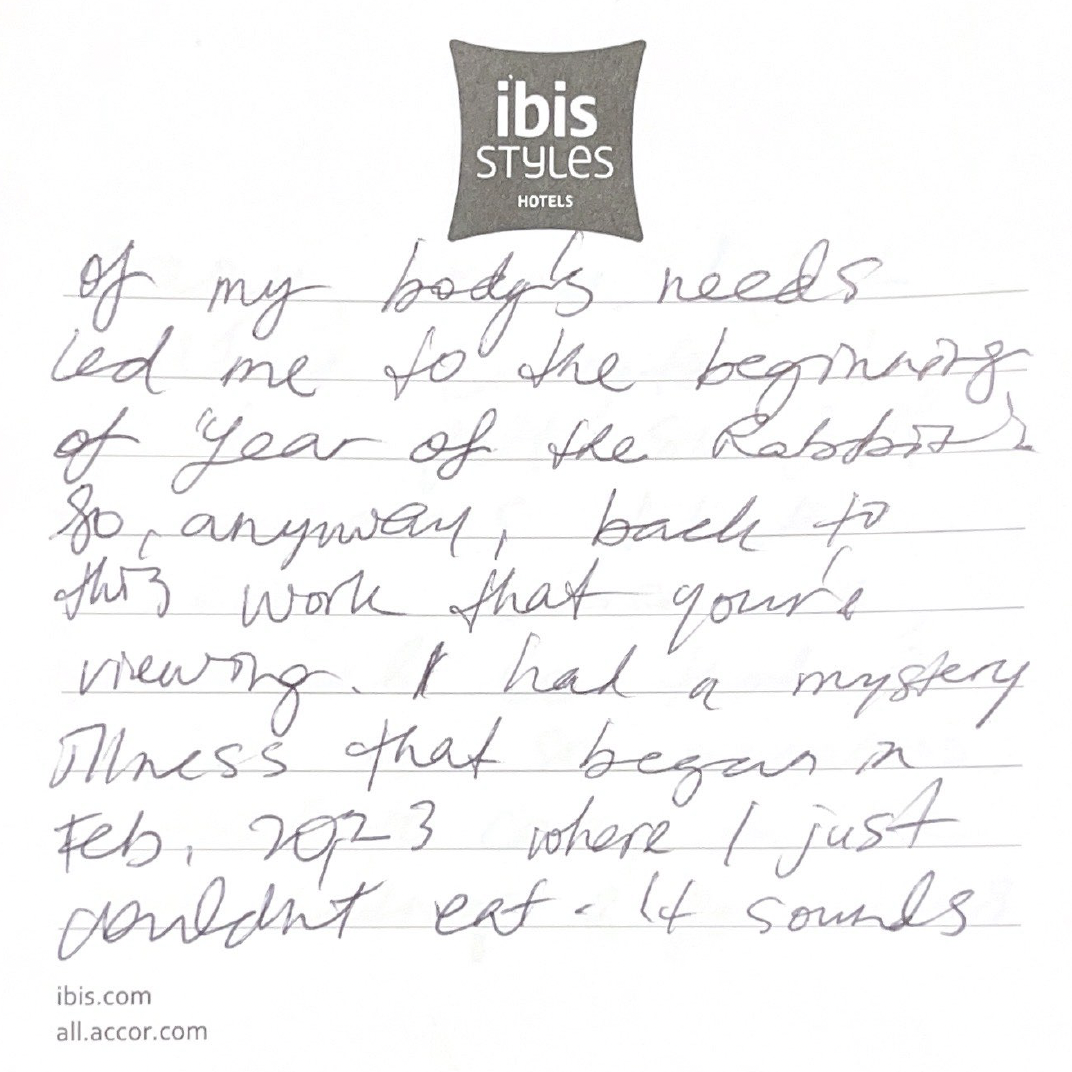 ibis
STYLES
HOTELS
of my body's needs
led me to the beginning
of "Year of the Rabbit".
So, anyway, back to
this work that you're
viewing. I had a mystery
illness that began in
Feb. 2023 where I just
couldn't eat. It sounds
ibis.com
all.accor.com